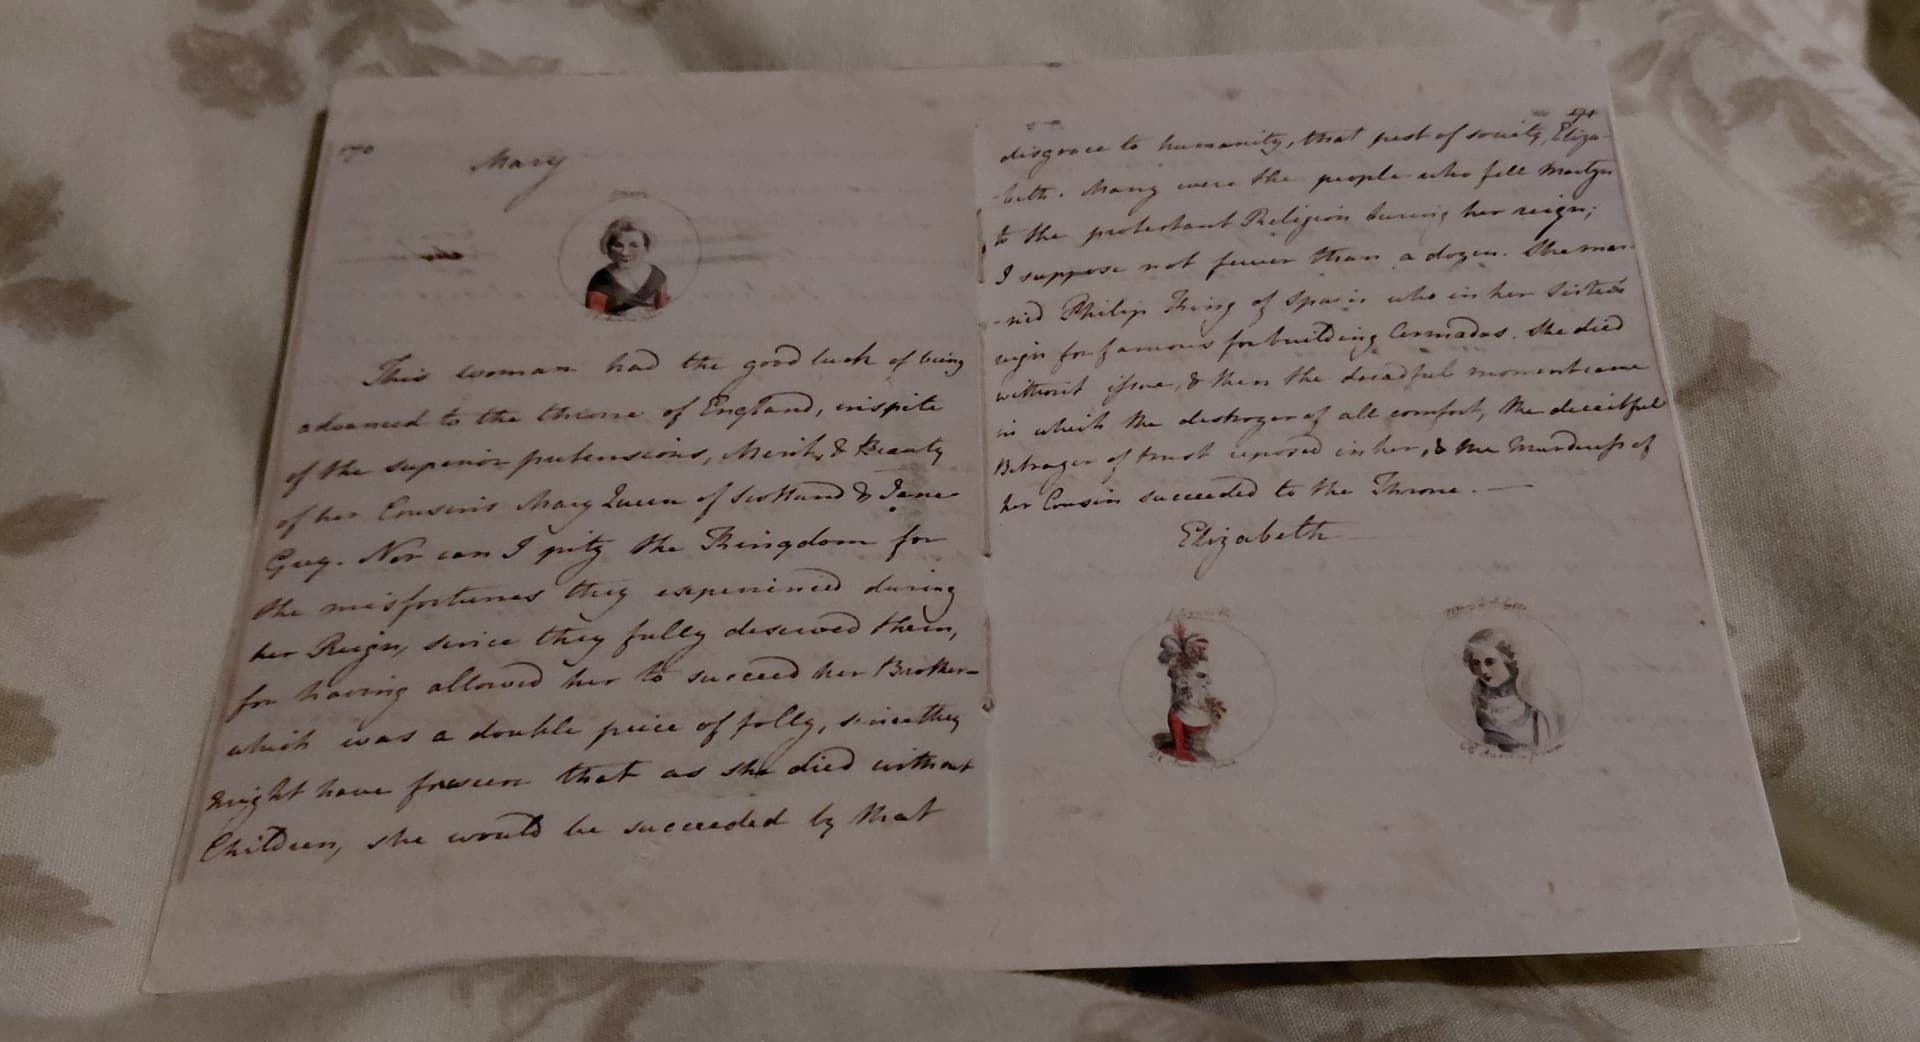 170
Mary
This woman had the good luck of being
advanced to the throne of England, inspite
of the superior pretensions, Merit, & Beauty
of her Cousins Mary Queen of Scotland & Jane
Grey. Nor can I pity the Kingdom for
the misfortunes they experienced during
her Reign, since they fully deserved them,
for having allowed her to succeed her Brother-
which was a double peice of folly, since they
might have foreseen that as she died without
Children, she would be succeeded by that
171
disgrace to humanity, that pest of society, Eliza-
-beth. Many were the people who fell Martyrs
to the protestant Religion during her reign;
I suppose not fewer than a dozen. She mar-
-ried Philip King of Spain who in her Sister's
reign for famous for building Armadas. She died
without issue, & then the dreadful moment came
in which the destroyer of all comfort, the deceitful
Betrayer of trust reposed in her, & the Murderess of
her Cousin succeeded to the Throne. —
Elizabeth